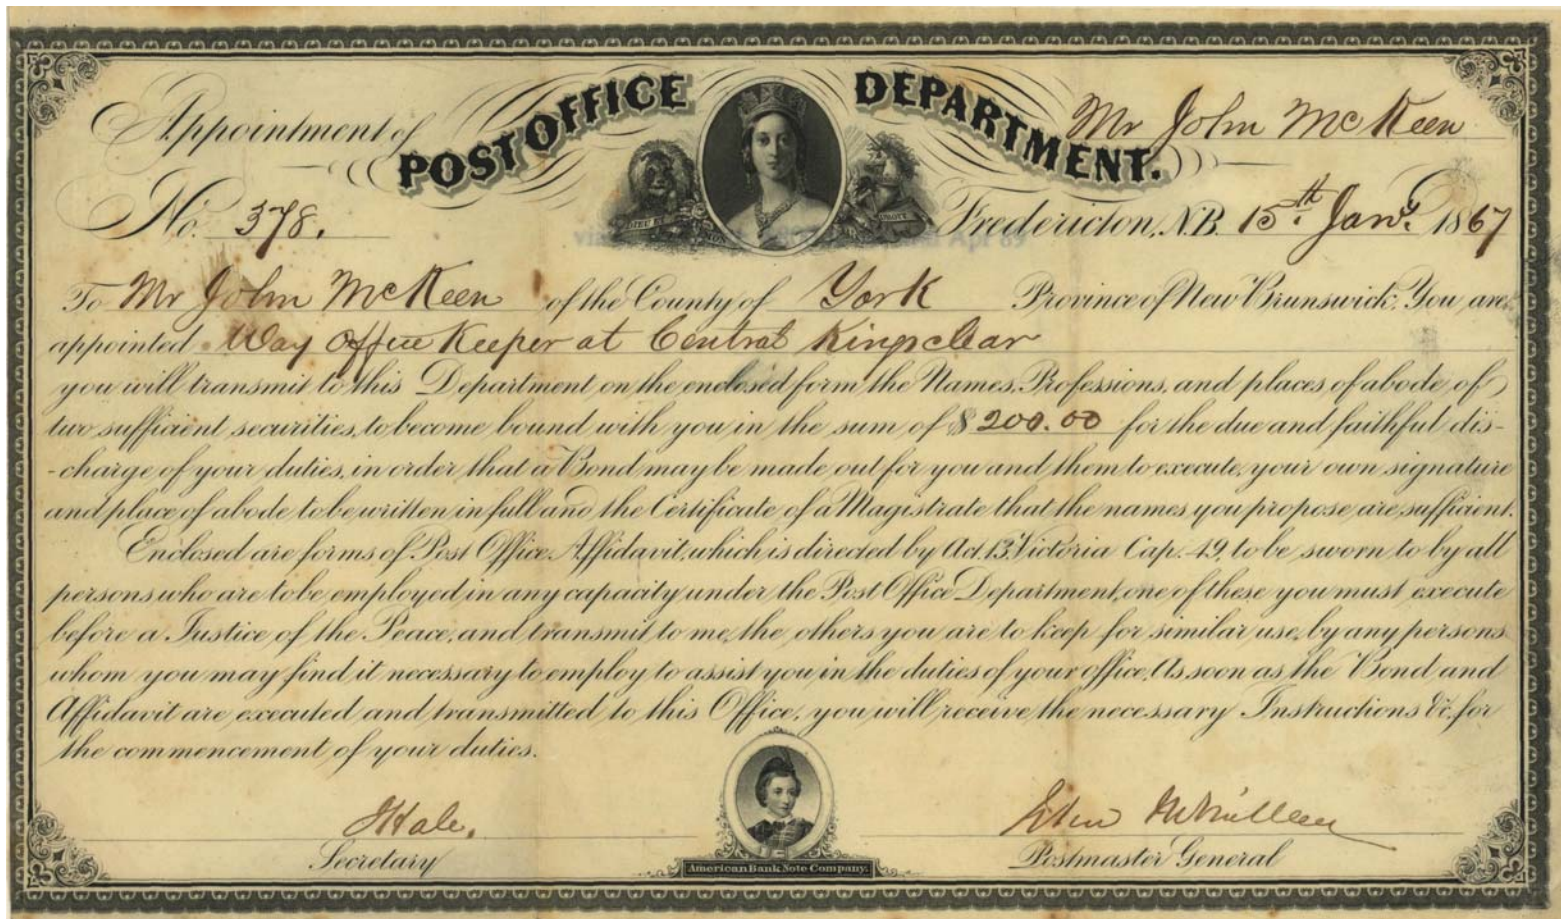 Appointment of POST OFFICE DEPARTMENT. Mr John McKeen
No. 378. Fredericton, N.B. 15th Jany. 1867
DIEU ET MON DROIT
Apr 89
To Mr John McKeen of the County of York Province of New Brunswick. You are
appointed Way Office Keeper at Central Kingsclear
you will transmit to this Department on the enclosed form the Names, Professions, and places of abode of
two sufficient securities, to become bound with you in the sum of $200.00 for the due and faithful dis-
-charge of your duties, in order that a Bond may be made out for you and them to execute, your own signature
and place of abode to be written in full and the Certificate of a Magistrate that the names you propose are sufficient.
Enclosed are forms of Post Office Affidavit, which is directed by Act 13. Victoria Cap. 49, to be sworn to by all
persons who are to be employed in any capacity under the Post Office Department, one of these you must execute
before a Justice of the Peace, and transmit to me, the others you are to keep for similar use, by any persons
whom you may find it necessary to employ to assist you in the duties of your office. As soon as the Bond and
Affidavit are executed and transmitted to this Office, you will receive the necessary Instructions &c. for
the commencement of your duties.
Hale.
Secretary
Postmaster General
American Bank Note Company.